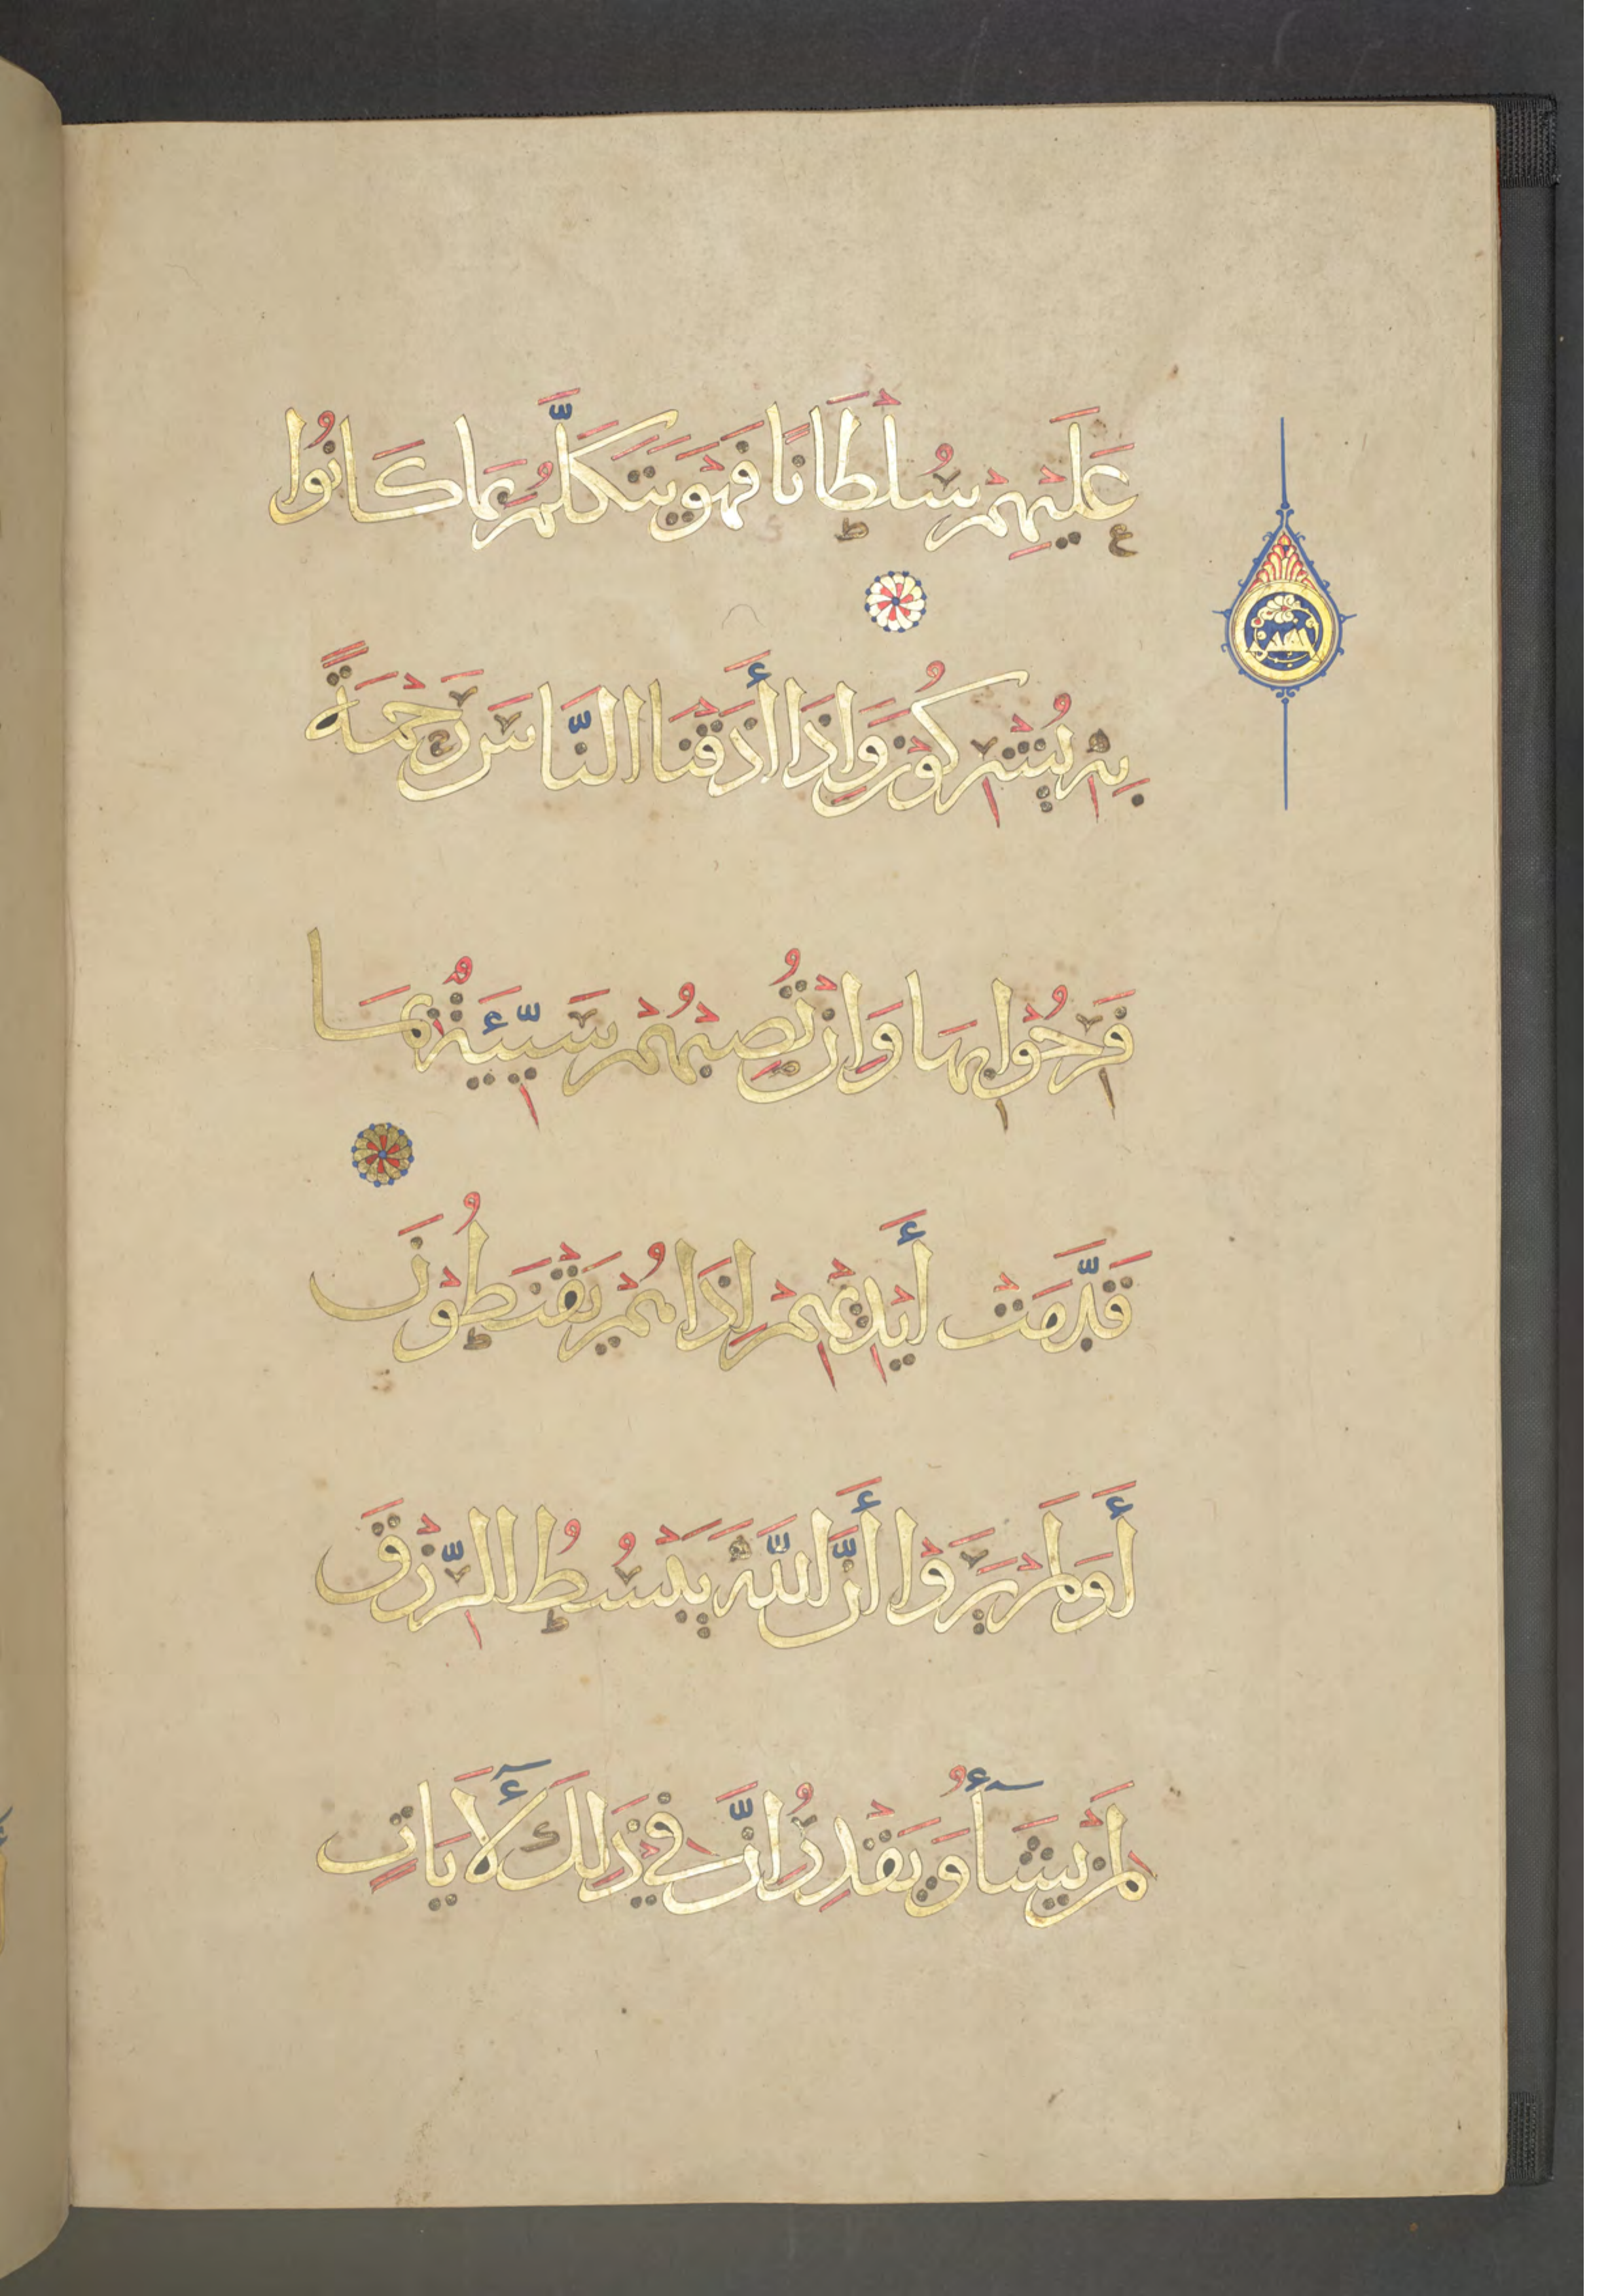 عَلَيْهِمْ سُلْطَانًا فَهْوَ يَتَكَلَّمُ بِمَا كَانُوا
بِهِ يُشْرِكُونَ وَإِذَا أَذَقْنَا النَّاسَ رَحْمَةً
فَرِحُوا بِهَا وَإِنْ تُصِبْهُمْ سَيِّئَةٌ بِمَا
قَدَّمَتْ أَيْدِيهِمْ إِذَا هُمْ يَقْنَطُونَ
أَوَلَمْ يَرَوْا أَنَّ اللَّهَ يَبْسُطُ الرِّزْقَ
لِمَنْ يَشَآءُ وَيَقْدِرُ إِنَّ فِي ذَلِكَ لَآيَاتٍ